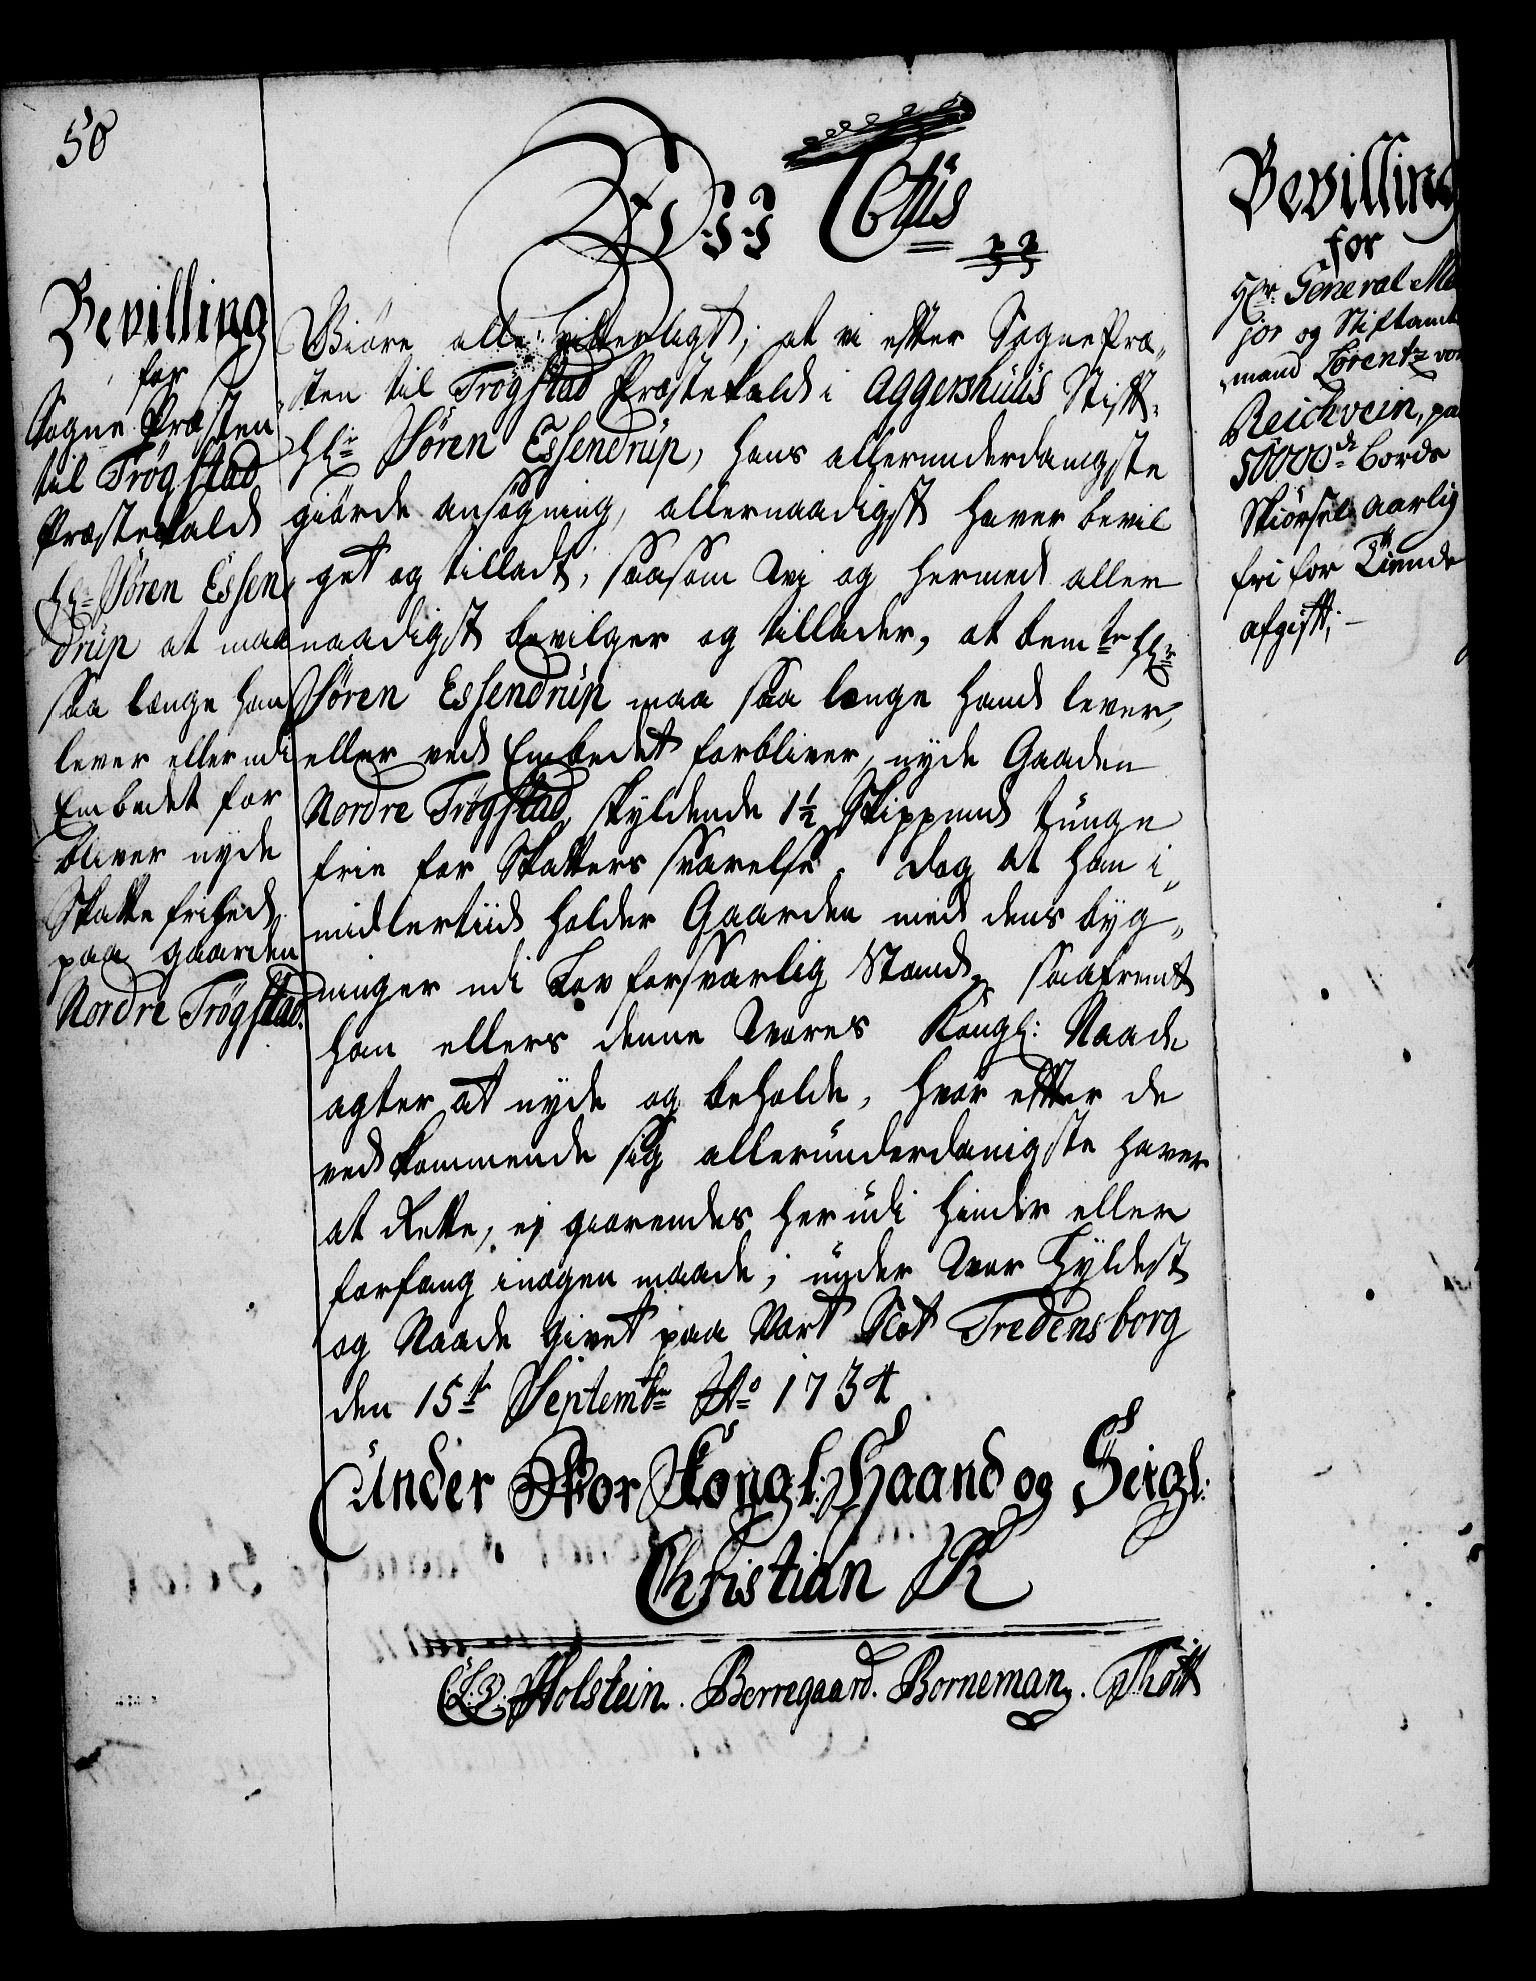 50
Bevilling
for
Sogne Præsten
til Trögstad
Præstekald
Hr. Sören Essen
drup at maa
saa længe han
lever eller udi
Embedet for
bliver nyde
Skatte frihed
paa gaarden
Nordre Trögstad.
Wii Ctus
Giöre alle vitterligt; at vi efter SognePræ„
„sten til Trögstad Præstekald i Aggershuus Stift„
Hr. Sören Essendrup, hans allerunderdanigste
giorde ansögning, allernaadigst haver bevil
get og tilladt, saasom Wj og hermed aller
naadigst bevilger og tillader, at bemte Hr.
Sören Essendrup maa saa længe hand lever,
eller ved Embedet forbliver, nyde Gaaden
Nordre Trögstad, skyldende 1½ Skippund tunge
frie for Skatters svarelse. dog at han i„
midlertiid holder Gaarden med dens byg„
ninger udi Lov forsvarlig Stand, saafremt
han ellers denne Wores Kongl: Naade
agter at nyde og beholde, hvor efter de
ved kommende sig allerunderdanigste haver
at Rette, ej giörendes her udi hinder eller
forfang i nogen maade, under Wor Hyldest
og Naade Givet paa Vort Slot Fredensborg
den 15te Septembr Ao 1734
Under Wor Kongl: Haand og Seigl:
Christian R
C.L.v. Holstein. Berregaard. Borneman. Thott
Bevilling
for
Hr. General Ma
jor og Stiftamt
mand Lorentz von
Reichvein, pa
50000de bords
Skiörsel aarlig
fri for Tiende
afgift,